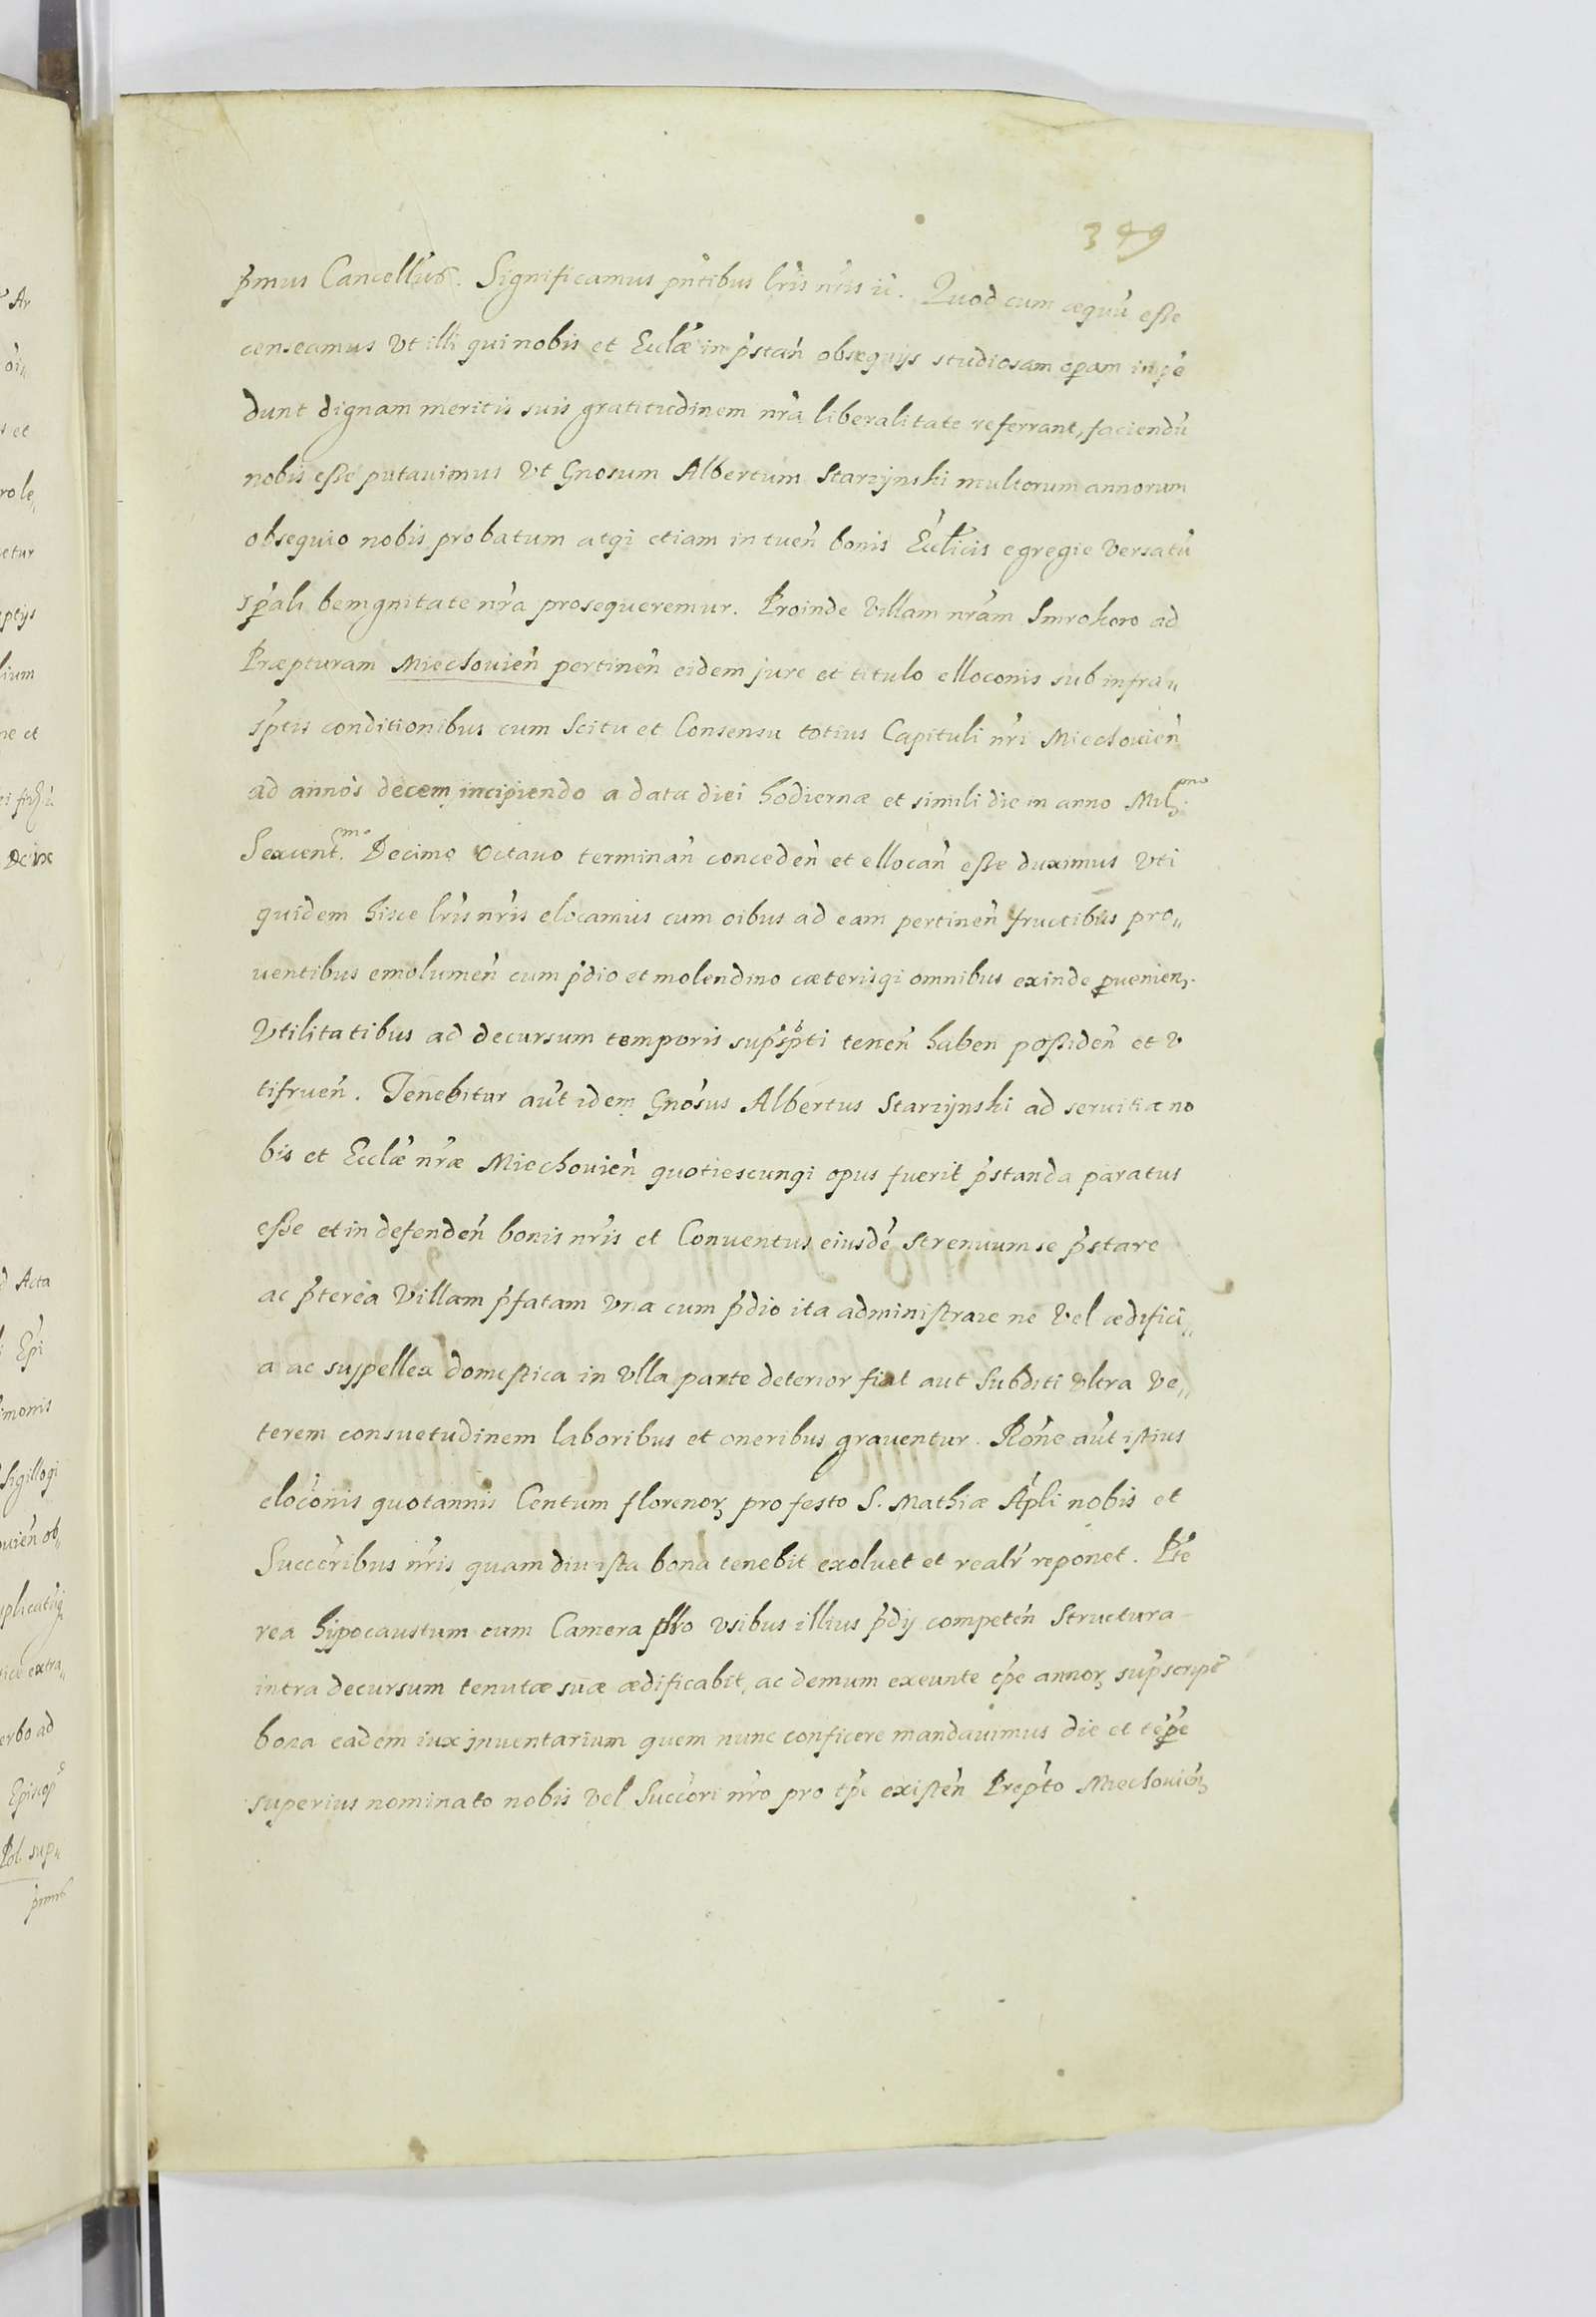 349
pmus Cancellus. Significamus pntibus lris nris ii. Quod cum aequũ esse
censeamus Vt illi qui nobis et Eccláe in pstan̉ obsequijs studiosam opam impẽ
dunt dignam meritis suis gratitudinem nrá liberalitate referrant, faciendũ
nobis esse putauimus Vt Gnosum Albertum Starzynski multorum annorum
obsequio nobis probatum atqi etiam in tuen̉ bonis Ecclicis egregie Versatũ
spáli benignitate nrá prosequeremur. Proinde Villam nrám Smrokoro ad
Praepturam Miechouien̉ pertinen̉ eidem jure et titulo elloconis sub infra„
sptis conditionibus cum Scitu et Consensu totius Capituli nri Miechouien̉
ad annos decem incipiendo a data diei hodiernae et simili die in anno Mill.mo
Sexcent.mo Decimo Octauo terminan̉ conceden̉ et ellocan̉ esse duximus Vti
quidem hisce lris nris elocamus cum oibus ad eam pertinen̉ fructibus pro„
uentibus emolumen̉ cum pdio et molendino caeterisqi omnibus exinde puenien.
Vtilitatibus ad decursum temporis supspti tenen̉ haben̉ possiden̉ et v
tifruen̉. Tenebitur aut idem Gnosus Albertus Starzynski ad seruitia no
bis et Eccláe nráe Miechouien̉ quotiescunqi opus fuerit pstanda paratus
esse et in defenden̉ bonis nris et Conuentus eiusdé strenuum se pstare
ac pterea Villam pfatam Vna cum pdio ita administrare ne Vel aedifici„
a ac suppellex domestica in Vlla parte deterior fiat aut Subditi Vltra Ve„
terem consuetudinem laboribus et oneribus grauentur. Róne aut istius
eloconis quotannis Centum florenoꝝ pro festo S. Mathiae Apli nobis et
Succoribus nris quam diu ista bona tenebit exoluet et realr reponet. Pte
rea hypocaustum cum Camera pro vsibus illius pdij competen̉ Structura
intra decursum tenutae suae aedificabit, ac demum exeunte tpe annoꝝ supscript
bona eadem iux inuentarium quem nunc conficere mandauimus die et tepe
superius nominato nobis Vel Succori nro pro tpe existen̉ Prepto Miechouien̉